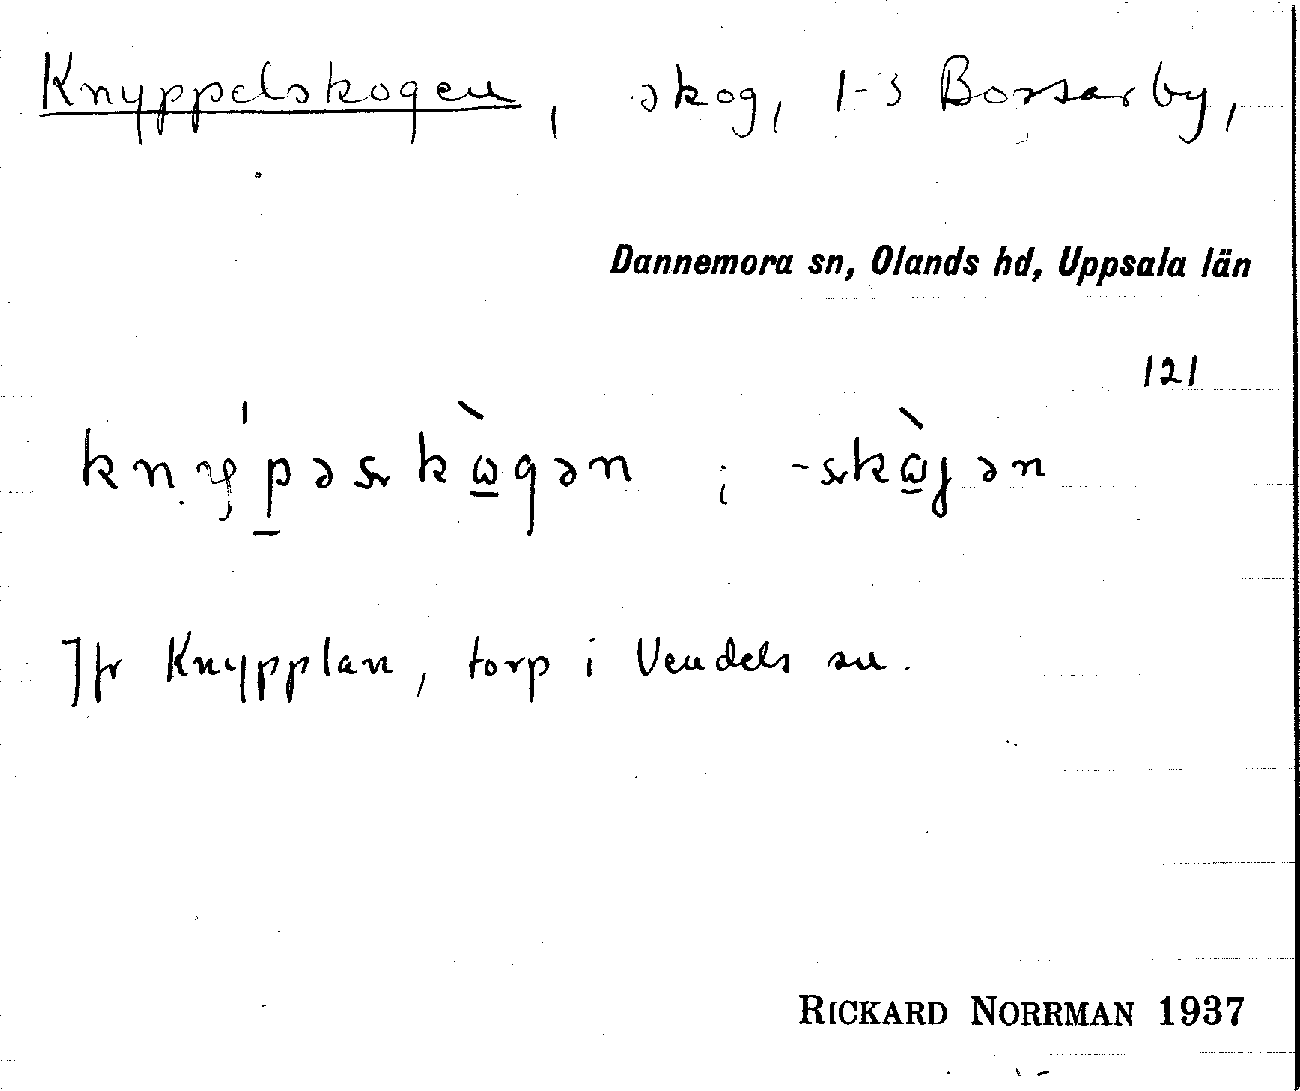 Knyppelskogen, skog, 1-3 Borsarby,
Dannemora sn, Olands hd, Uppsala län
121
Jfr Knypplan, torp i Vendels sn.
RICKARD NORRMAN 1937